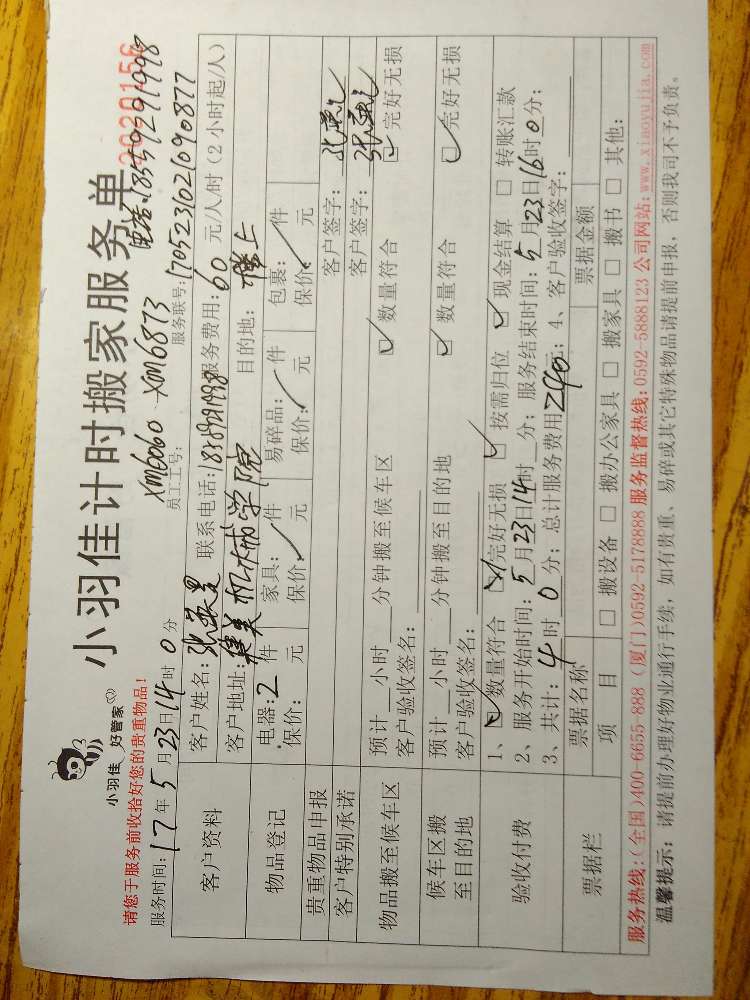 小羽佳 好管家
小羽佳计时搬家服务单
2020156
电话:18559291998
请您于服务前收拾好您的贵重物品!
XM6060 XM6873
服务时间:17年5月23日14时0分 员工工号: 服务联号:1705231021090877
客户资料
客户姓名: 联系电话: 服务费用:60元/人/时(2小时起/人)
客户地址:集美机械学院 目的地:楼上
物品登记
电器:2件 家具: 件 易碎品: 件 包裹: 件
保价: 元 保价: 元 保价: 元 保价: 元
贵重物品申报 客户签字:
客户特别承诺 客户签字:
物品搬至候车区
预计__小时__分钟搬至候车区 数量符合 完好无损
客户验收签名:
候车区搬至目的地
预计__小时__分钟搬至目的地 数量符合 完好无损
客户验收签名:
验收付费
1、数量符合 完好无损 按需归位 现金结算 转账汇款
2、服务开始时间:5月23日14时__分;服务结束时间:5月23日16时0分;
3、共计:4时0分;总计服务费用240元;4、客户验收签字:
票据栏
票据名称 票据金额
项目 搬设备 搬办公家具 搬家具 搬书 其他:
服务热线:(全国)400-6655-888 (厦门)0592-5178888 服务监督热线:0592-5888123 公司网站:www.xiaoyujia.com
温馨提示:请提前办理好物业通行手续,如有贵重、易碎或其它特殊物品请提前申报,否则我司不予负责。